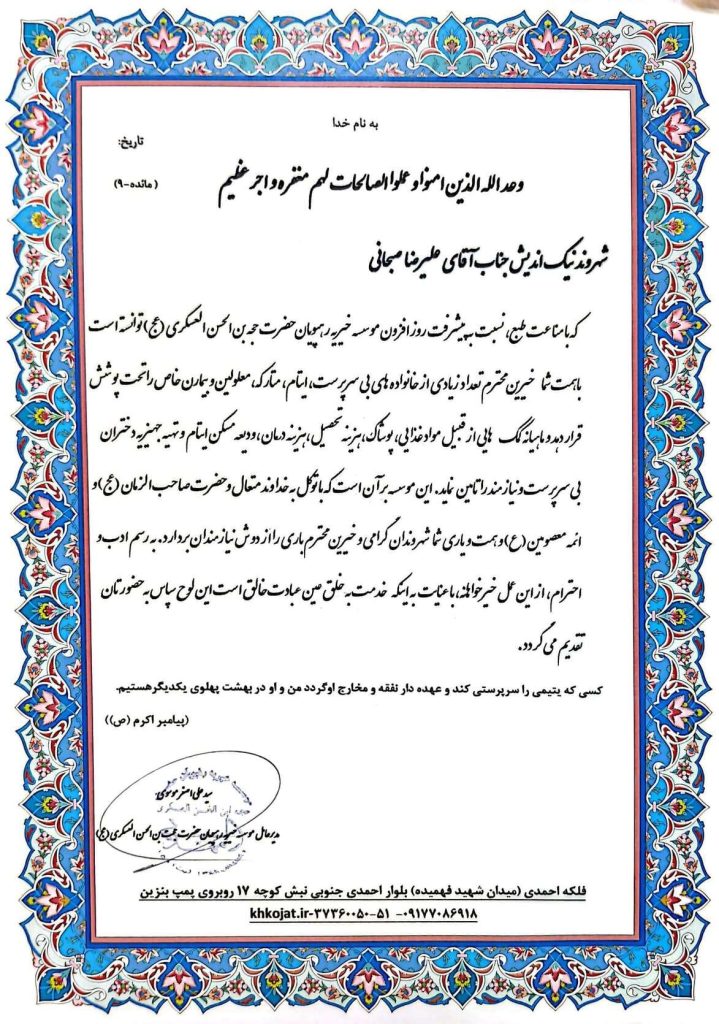 به نام خدا
تاریخ:
وعد الله الذین امنوا و عملوا الصالحات لهم مغفره و اجر عظیم
(مائده-۹)
شهروند نیک اندیش جناب آقای علیرضا صبحانی
که با مناعت طبع، نسبت به پیشرفت روز افزون موسسه خیریه رهپویان حضرت حجه بن الحسن العسکری (عج) توانسته است
با همت شما خیرین محترم تعداد زیادی از خانواده های بی سرپرست، ایتام، متارکه، معلولین و بیمارن خاص را تحت پوشش
قرار دهد و ماهیانه کمک هایی از قبیل مواد غذایی، پوشاک، هزینه تحصیل، هزینه درمان، ودیعه مسکن ایتام و تهیه جهیزیه دختران
بی سرپرست و نیازمند را تامین نماید. این موسسه بر آن است که با توکل به خداوند متعال و حضرت صاحب الزمان (عج) و
ائمه معصومین (ع) و همت و یاری شما شهروندان گرامی و خیرین محترم باری را از دوش نیازمندان بردارد. به رسم ادب و
احترام، از این عمل خیرخواهانه، با عنایت به اینکه خدمت به خلق عین عبادت خالق است این لوح سپاس به حضورتان
تقدیم می گردد.
کسی که یتیمی را سرپرستی کند و عهده دار نفقه و مخارج اوگردد من و او در بهشت پهلوی یکدیگرهستیم.
(پیامبر اکرم (ص))
سید علی اصغر موسوی
مدیرعامل موسسه خیریه رهپویان حضرت حجت بن الحسن العسکری (عج)
فلکه احمدی (میدان شهید فهمیده) بلوار احمدی جنوبی نبش کوچه ۱۷ روبروی پمپ بنزین
khkojat.ir-۳۷۳۶۰۰۵۰-۵۱ -۰۹۱۷۷۰۸۶۹۱۸